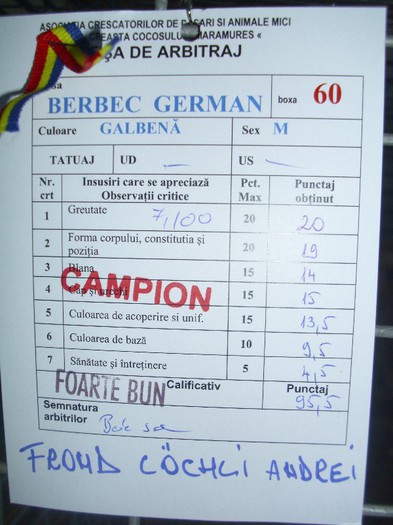 ASOCIAȚIA CRESCATORILOR DE PASARI SI ANIMALE MICI
CREASTA COCOSULUI MARAMURES «
ȘA DE ARBITRAJ
sa BERBEC GERMAN boxa 60
Culoare GALBENĂ Sex M
TATUAJ UD — US —
Nr. crt Insusiri care se apreciază Observații critice Pct. Max Punctaj obținut
1 Greutate 7,100 20 20
2 Forma corpului, constitutia și poziția 20 19
3 Blana 15 14
4 Cap și urechi 15 15
CAMPION
5 Culoarea de acoperire si unif. 15 13,5
6 Culoarea de bază 10 9,5
7 Sănătate și întreținere 5 4,5
FOARTE BUN Calificativ Punctaj 95,5
Semnatura arbitrilor
FROHD CÖCHLI ANDREI